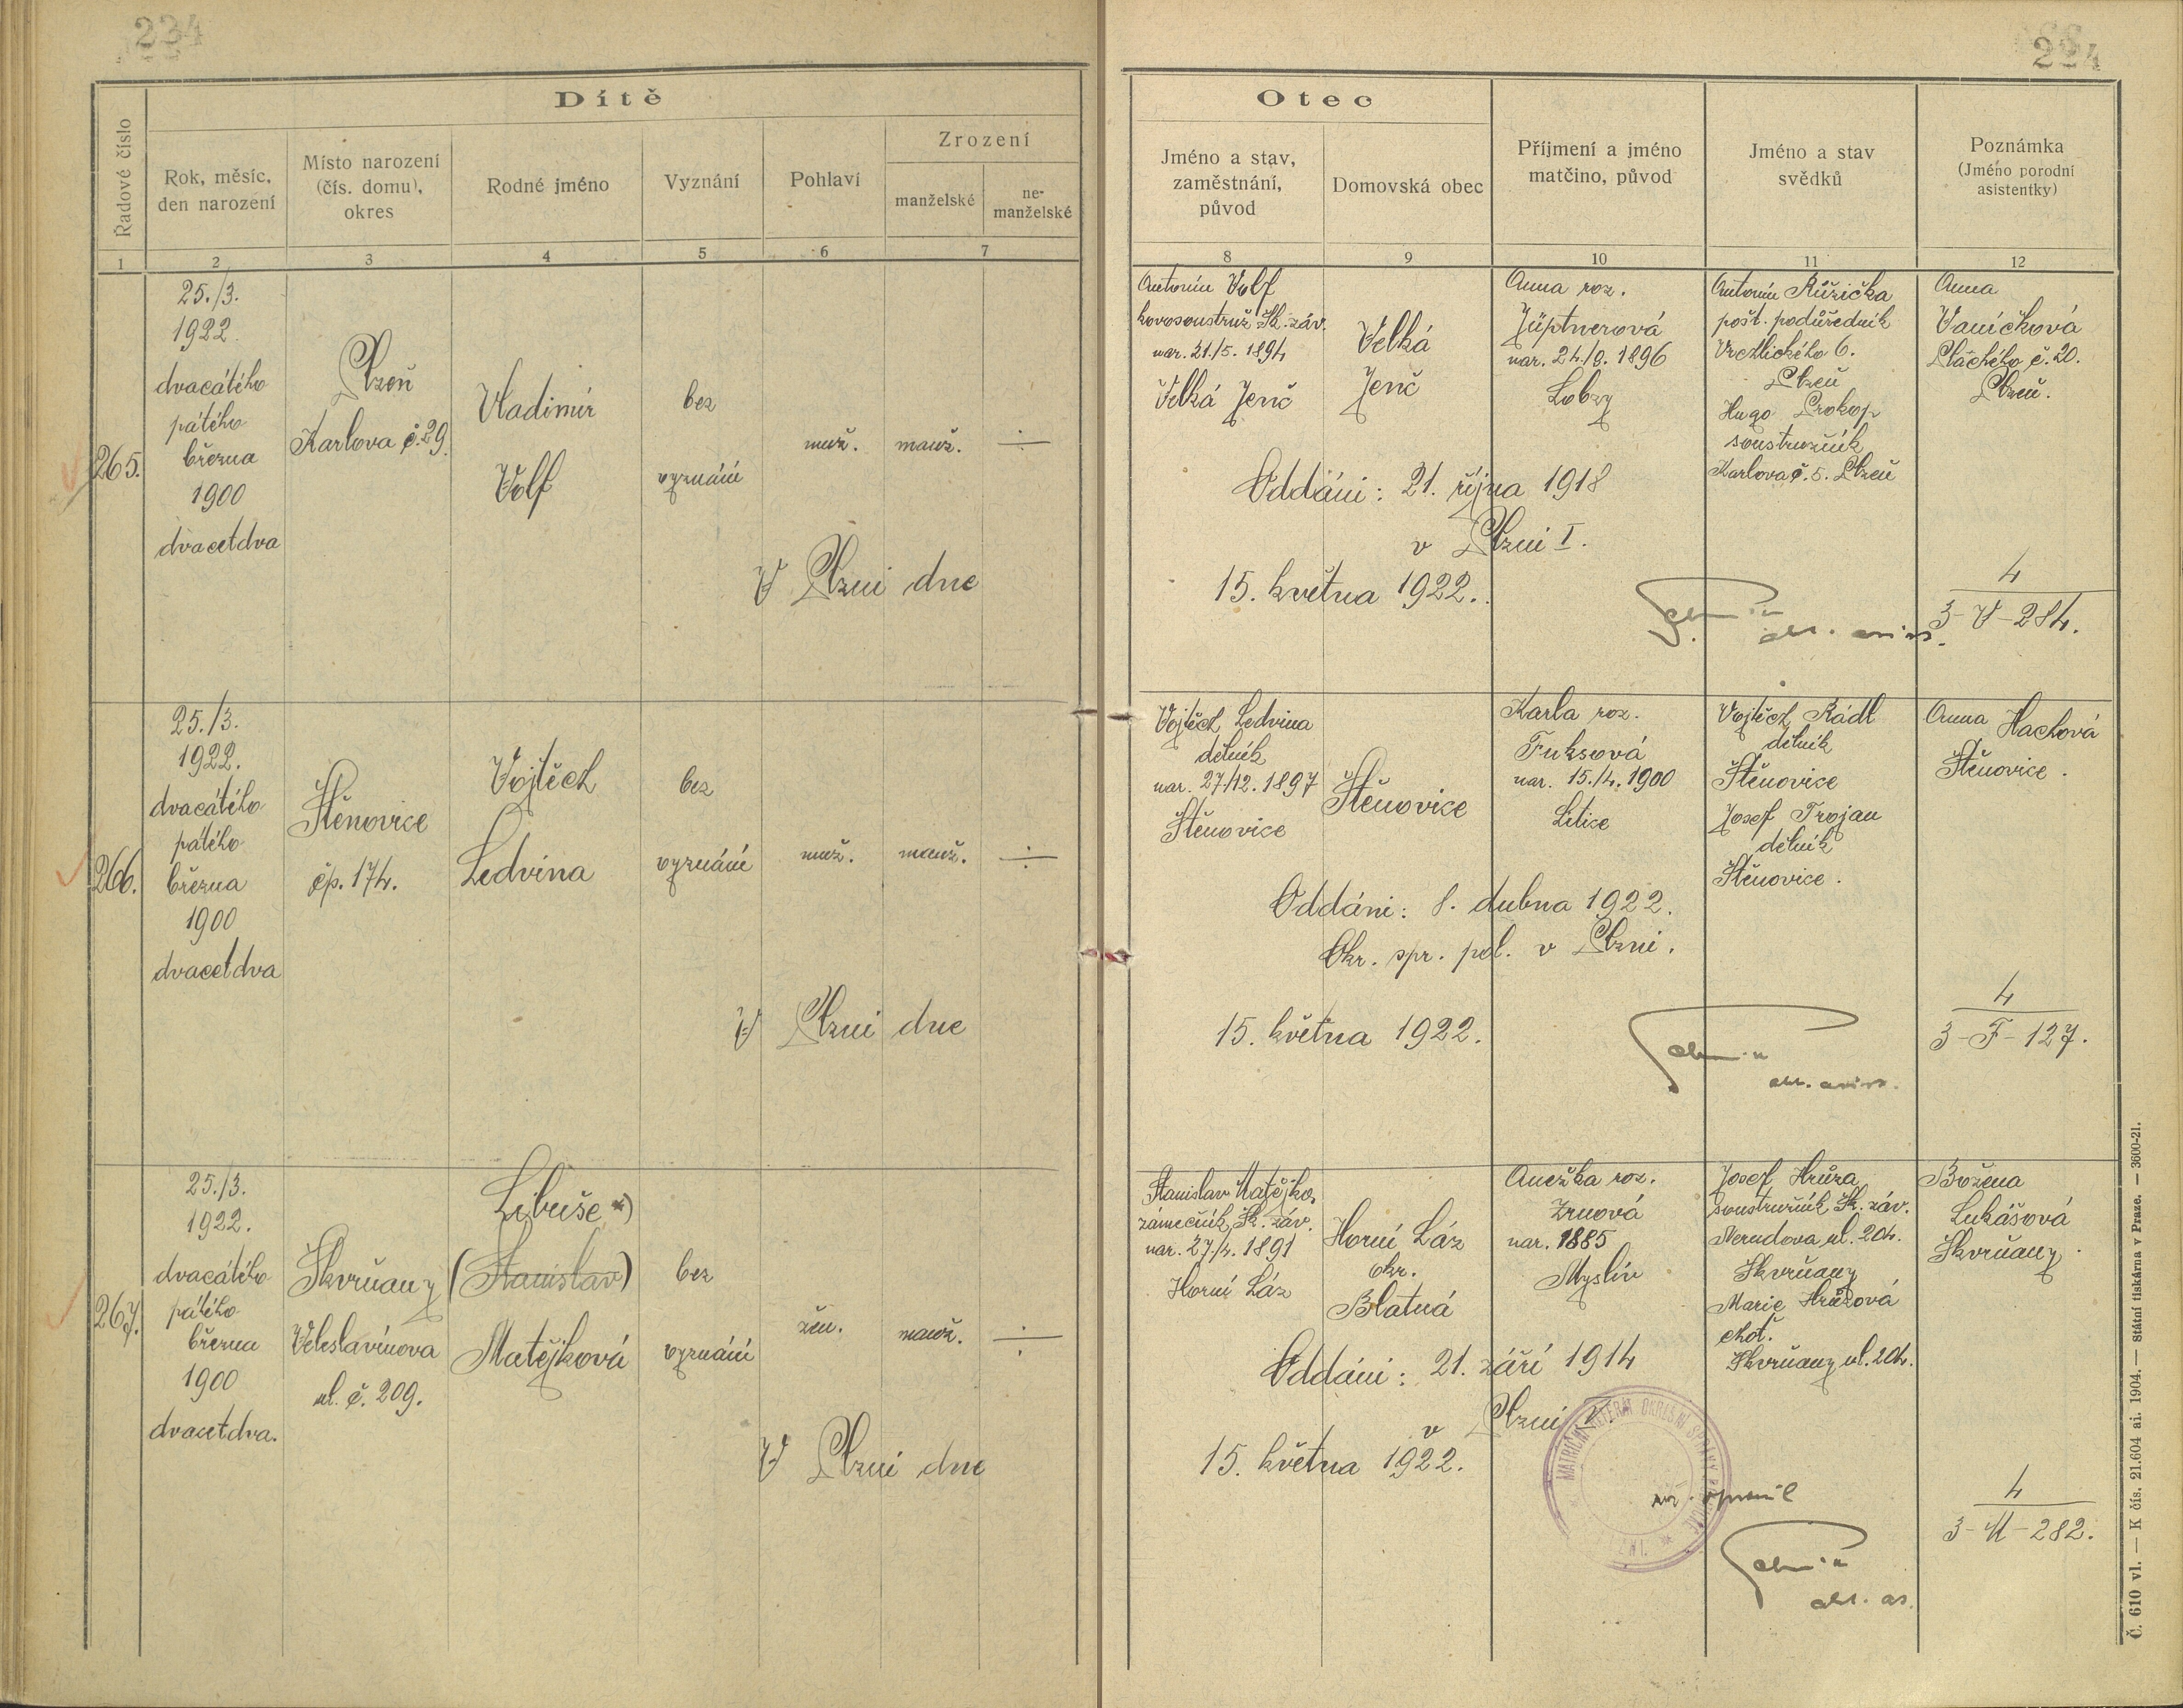 234
Dítě
Řadové číslo
Rok, měsíc,
den narození
Místo narození
(čís. domu),
okres
Rodné jméno
Vyznání
Pohlaví
Zrození
manželské
ne-
manželské
1
2
3
4
5
6
7
265.
25./3.
1922.
dvacátého
pátého
března
1900
dvacetdva
Plzeň
Karlova č. 29.
Vladimír
Volf
bez
vyznání
muž.
manž.
÷
V Plzni dne
266.
25./3.
1922.
dvacátého
pátého
března
1900
dvacetdva
Štěnovice
čp. 174.
Vojtěch
Ledvina
bez
vyznání
muž.
manž.
÷
V Plzni dne
267.
25./3.
1922.
dvacátého
pátého
března
1900
dvacetdva.
Skvrňany
Veleslavínova
ul. č. 209.
Libuše *)
(Stanislav)
Matějková
bez
vyznání
žen.
manž.
÷
V Plzni dne
224
Otec
Jméno a stav,
zaměstnání,
původ
Domovská obec
Příjmení a jméno
matčino, původ
Jméno a stav
svědků
Poznámka
(Jméno porodní
asistentky)
8
9
10
11
12
Antonín Volf
kovosoustruž. Šk. záv.
nar. 21./5. 1894
Velká Jenč
Velká
Jenč
Anna roz.
Jüptnerová
nar. 1896
Lobzy
Antonín Růžička
pošt. podúředník
Vrchlického 6.
Plzeň
Hugo Prokop
soustružník
Karlova č. 5. Plzeň
Anna
Vaníčková
Plachého č. 20.
Plzeň.
Oddáni: 21. října 1918
v Plzni I.
15. května 1922.
4
3-V-284.
Vojtěch Ledvina
dělník
nar. 27/12. 1897
Štěnovice
Štěnovice
Karla roz.
Fuksová
nar. 15./4. 1900
Litice
Vojtěch Rádl
dělník
Štěnovice
Josef Trojan
dělník
Štěnovice.
Anna Hachová
Štěnovice.
Oddáni: 8. dubna 1922.
Okr. spr. pol. v Plzni.
15. května 1922.
4
3-F-127.
Stanislav Matějka,
zámečník, Šk. záv.
nar. 27./4. 1891
Horní Láz
Horní Láz
okr.
Blatná
Anežka roz.
Zrnová
nar. 1885
Myslív
Josef Hrůza
soustružník Šk. záv.
Nerudova ul. 204.
Skvrňany
Marie Hrůzová
choť.
Skvrňany ul. 204.
Božena
Lukášová
Skvrňany.
Oddáni: 21. září 1914
v Plzni V.
15. května 1922.
opravil
4
3-M-282.
Č. 610 vl. — K čís. 21.604 ai. 1904. — Státní tiskárna v Praze. — 3600-21.